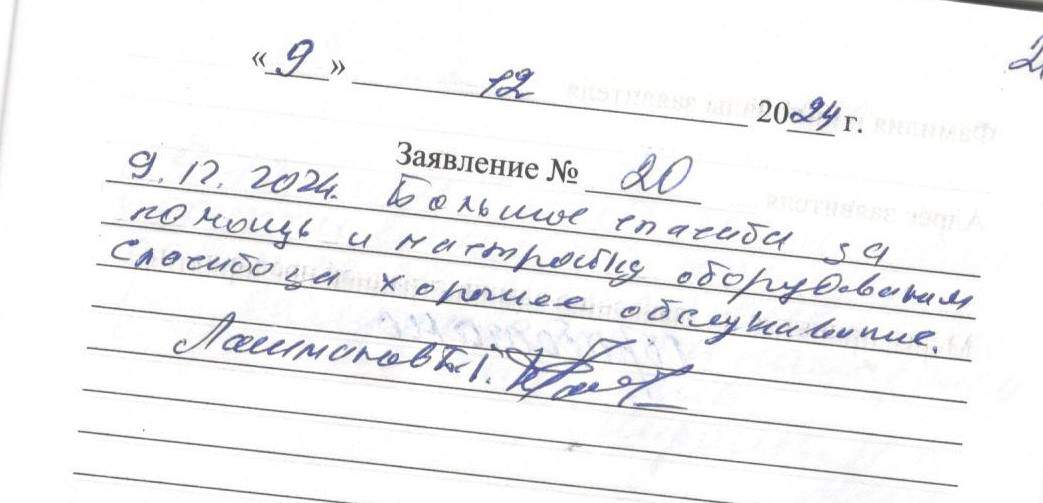 « 9 » 12 2024 г.
Заявление № 20
9.12.2024. Большое спасибо за
помощь и настройку оборудования
Спасибо за хорошее обслуживание.